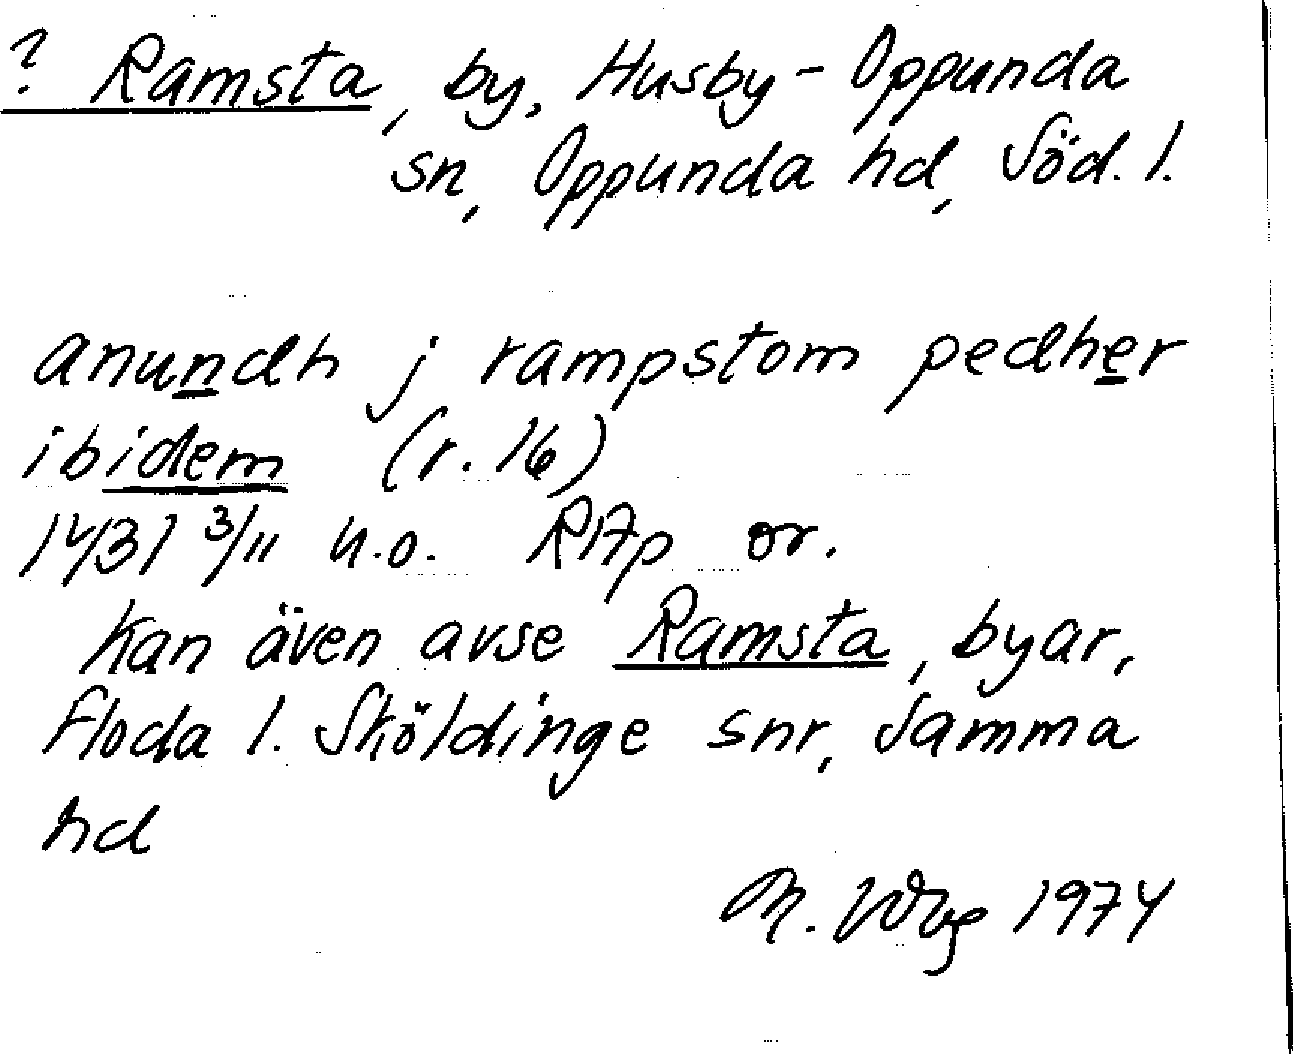 ? Ramsta, by, Husby-Oppunda
sn, Oppunda hd, Söd. l.
anundh j rampstom pedher
ibidem (r. 16)
1431 3/11 u.o. RAp or.
Kan även avse Ramsta, byar,
Floda l. Sköldinge snr, samma
hd
M. 1974